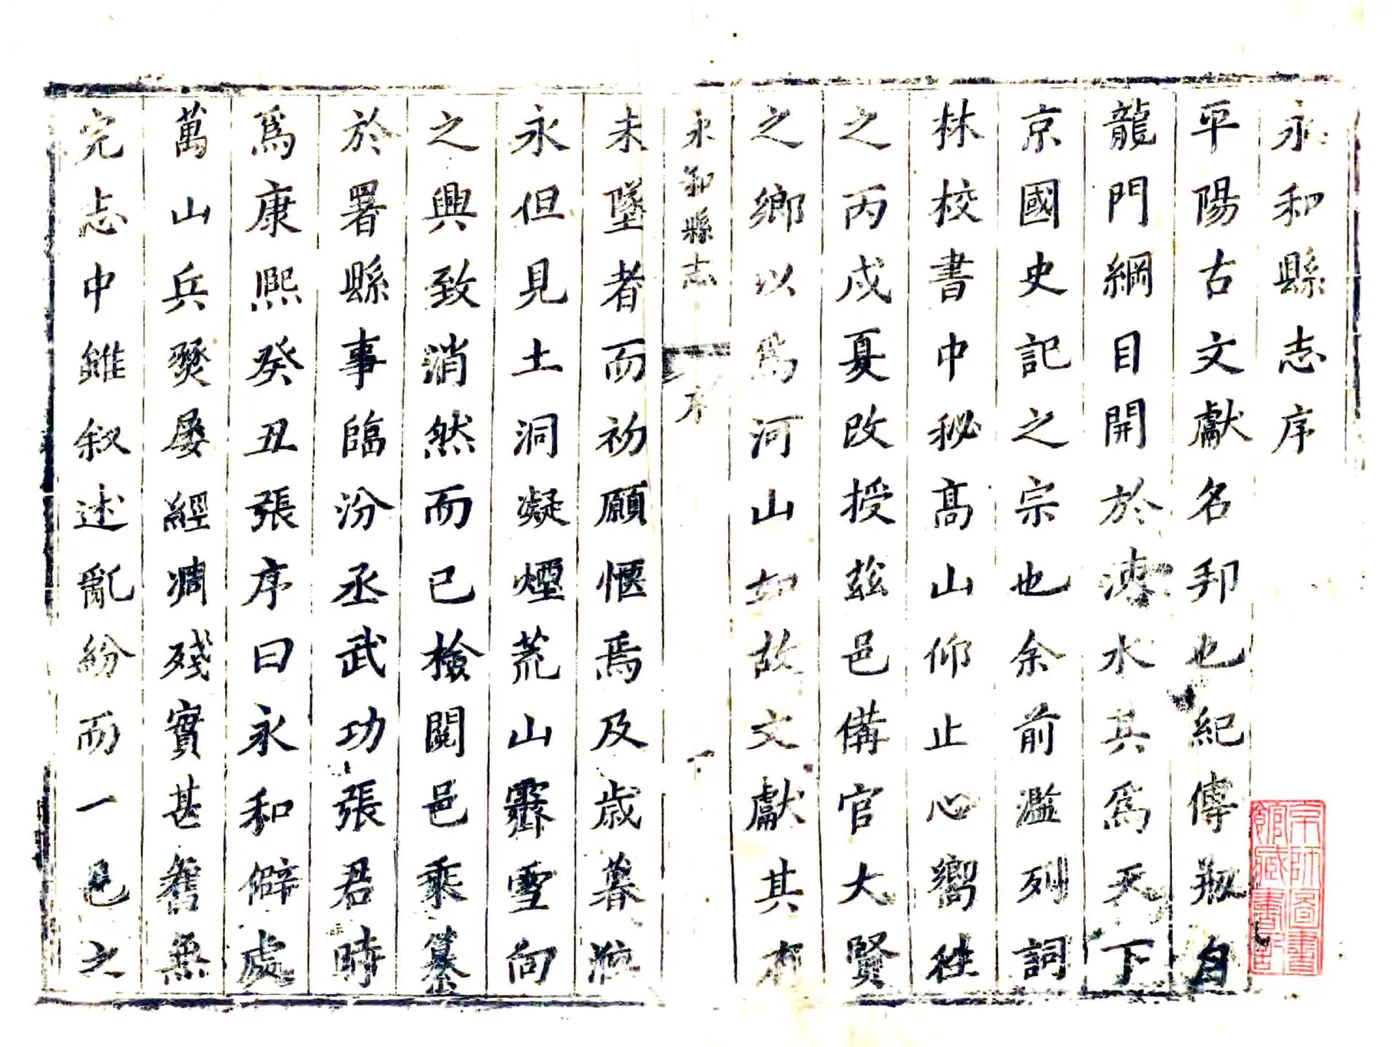 永和縣志序
平陽古文獻名邦也紀傳刱自
龍門綱目開於涑水其爲天下
京國史記之宗也余前濫列詞
林校書中秘高山仰止心嚮往
之丙戌夏改授茲邑備官大賢
之鄉以爲河山如故文獻其有
永和縣志
序
一
未墜者而初願愜焉及歲暮旅
永但見土洞凝煙荒山霽雪向
之興致消然而已檢閱邑乘纂
於署縣事臨汾丞武功張君時
爲康熙癸丑張序曰永和僻處
萬山兵燹屢經凋殘實甚舊無
完志中雖叙述亂紛而一邑之
京師圖書
館藏書記